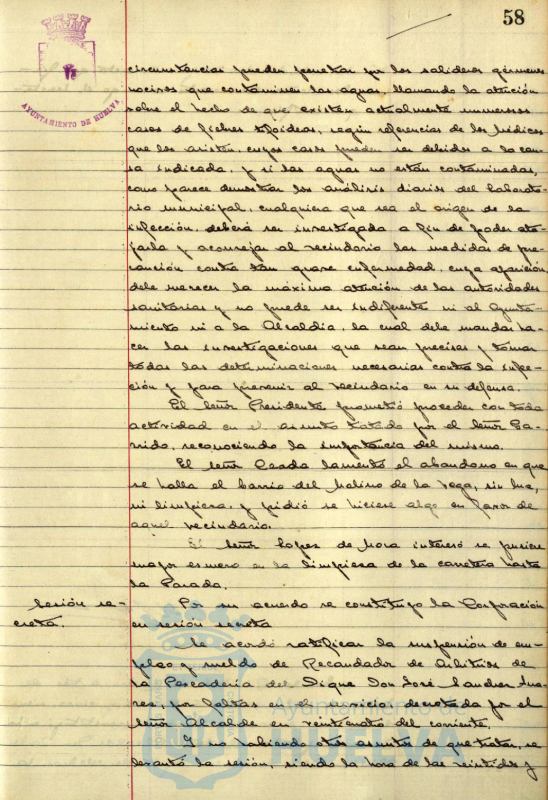 58
AYUNTAMIENTO DE HUELVA
circunstancias pueden penetrar por los salideros gérmenes
nocivos que contaminen las aguas, llamando la atención
sobre el hecho de que existen actualmente numerosos
casos de fiebres tifoideas, según referencias de los médicos
que los asisten, cuyos casos pueden ser debidos a la cau-
sa indicada, y si las aguas no están contaminadas,
como parece demostrar los análisis diarios del Laborato-
rio municipal, cualquiera que sea el origen de la
infección, deberá ser investigada a fin de poder ata-
jarla y aconsejar al vecindario las medidas de pre-
caución contra tan grave enfermedad, cuya aparición
debe merecer la máxima atención de las autoridades
sanitarias y no puede ser indiferente ni al Ayunta-
miento ni a la Alcaldía, la cual debe mandar ha-
cer las investigaciones que sean precisas y tomar
todas las determinaciones necesarias contra la infec-
ción y para prevenir al vecindario en su defensa.
El Señor Presidente prometió proceder con toda
actividad en el asunto tratado por el Señor Ga-
rrido, reconociendo la importancia del mismo.
El señor Ceada lamentó el abandono en que
se halla el barrio del Molino de la Vega, sin luz,
ni limpieza, y pidió se hiciese algo en favor de
aquel vecindario.
El Señor Lopez de Mora interesó se pusiere
mayor esmero en la limpieza de la carretera hasta
la Parada.
Sesión se-
creta.
Por su acuerdo se constituyó la Corporación
en sesión secreta
Se acordó ratificar la suspensión de em-
pleo y sueldo de Recaudador de Arbitrios de
la Pescadería del Dique Don José Sanchez Sua-
res, por faltas en el servicio, decretada por el
Señor Alcalde en veinticuatro del corriente.
Y no habiendo otros asuntos de que tratar, se
levantó la sesión, siendo la hora de las veintidos y
Ayuntamiento de
HUELVA